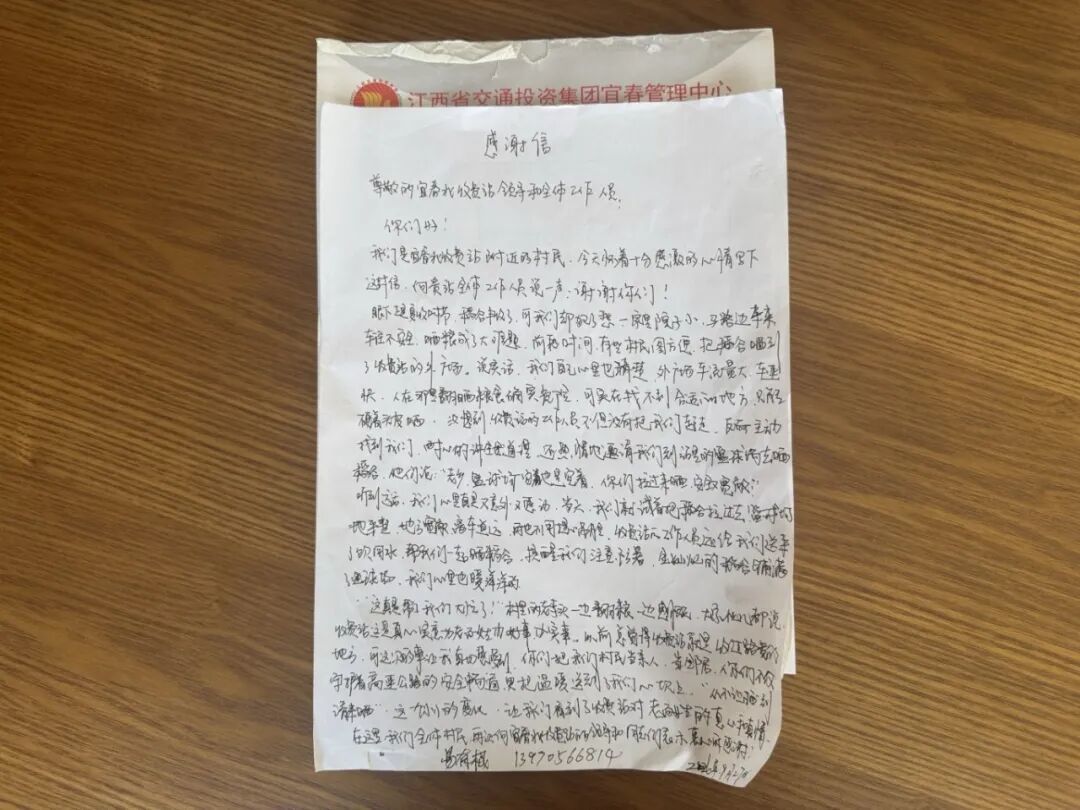 江西省交通投资集团宜春管理中心
感谢信
尊敬的宜春北收费站领导和全体工作人员：
你们好！
我们是宜春北收费站附近的村民，今天怀着十分感激的心情写下
这封信，向贵站全体工作人员说一声：谢谢你们！
眼下正是夏收时节，稻谷丰收了，可我们却犯了愁，一家里院子小，马路边车来
车往不安全，晒粮成了大难题。前段时间，有些村民图方便，把稻谷晒到
了收费站的外广场。说实话，我们自己心里也清楚，外广场车流量大、车速
快，人在那里翻晒粮食确实危险，可实在找不到合适的地方，只能
硬着头皮晒。没想到收费站的工作人员不但没有把我们赶走，反而主动
找到我们，耐心的讲安全道理，还热情地邀请我们到站里的篮球场去晒
稻谷，他们说：“老乡，篮球场空着也是空着，你们拉过来晒，安全又宽敞！”
听到这话，我们心里真是又意外又感动，当天，我们就试着把稻谷拉过去，篮球场
地平整，地方宽敞，离车道远，再也不用提心吊胆，收费站工作人员还给我们送来
了饮用水，帮我们一起晒稻谷，提醒我们注意防暑，金灿灿的稻谷铺满
了篮球场，我们心里也暖洋洋的
“这真是帮了我们大忙了！”村里的老人一边翻粮一边感慨，大家伙儿都说
收费站这是真心实意为老百姓办好事、办实事。以前总觉得收费站就是收过路费的
地方，可这次的事让我真切感受到，你们把我们村民当亲人、当邻居，你们不仅
守护着高速公路的安全畅通，更把温暖送到了我们心坎上。“从不让晒到
请来晒”这个小小的变化，让我们看到了收费站对老百姓的真心和真情。
在这里我们全体村民再次向宜春北收费站的领导和同志们表示衷心的感谢！
易 根 13970566814